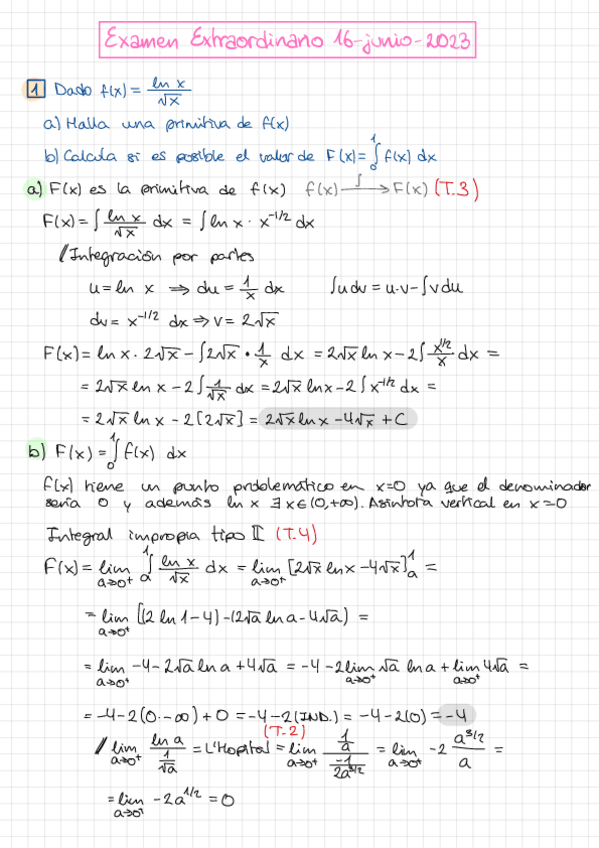 Examen Extraordinario 16-junio-2023
1 Dado f(x) = ln x / √x
a) Halla una primitiva de f(x)
b) Calcula si es posible el valor de F(x) = ∫₀¹ f(x) dx
a) F(x) es la primitiva de f(x) f(x) —∫→ F(x) (T.3)
F(x) = ∫ ln x / √x dx = ∫ ln x · x^(-1/2) dx
/ Integración por partes
u = ln x ⇒ du = 1/x dx ∫u dv = u·v - ∫v du
dv = x^(-1/2) dx ⇒ v = 2√x
F(x) = ln x · 2√x - ∫2√x · 1/x dx = 2√x ln x - 2∫ x^(1/2)/x dx =
= 2√x ln x - 2∫ 1/√x dx = 2√x ln x - 2∫ x^(-1/2) dx =
= 2√x ln x - 2[2√x] = 2√x ln x - 4√x + C
b) F(x) = ∫₀¹ f(x) dx
f(x) tiene un punto problemático en x=0 ya que el denominador
sería 0 y además ln x ∃ x ∈ (0,+∞). Asíntota vertical en x=0
Integral impropia tipo II (T.4)
F(x) = lim a→0⁺ ∫ₐ¹ ln x / √x dx = lim a→0⁺ [2√x ln x - 4√x]ₐ¹ =
= lim a→0⁺ [(2 ln 1 - 4) - (2√a ln a - 4√a) =
= lim a→0⁺ -4 - 2√a ln a + 4√a = -4 - 2 lim a→0⁺ √a ln a + lim a→0⁺ 4√a =
= -4 - 2(0·-∞) + 0 = -4 - 2(IND.) = -4 - 2(0) = -4
(T-2)
/ lim a→0⁺ ln a / (1/√a) = L'Hopital = lim a→0⁺ (1/a) / (-1/(2a^(3/2))) = lim a→0⁺ -2 a^(3/2)/a =
= lim a→0⁺ -2a^(1/2) = 0